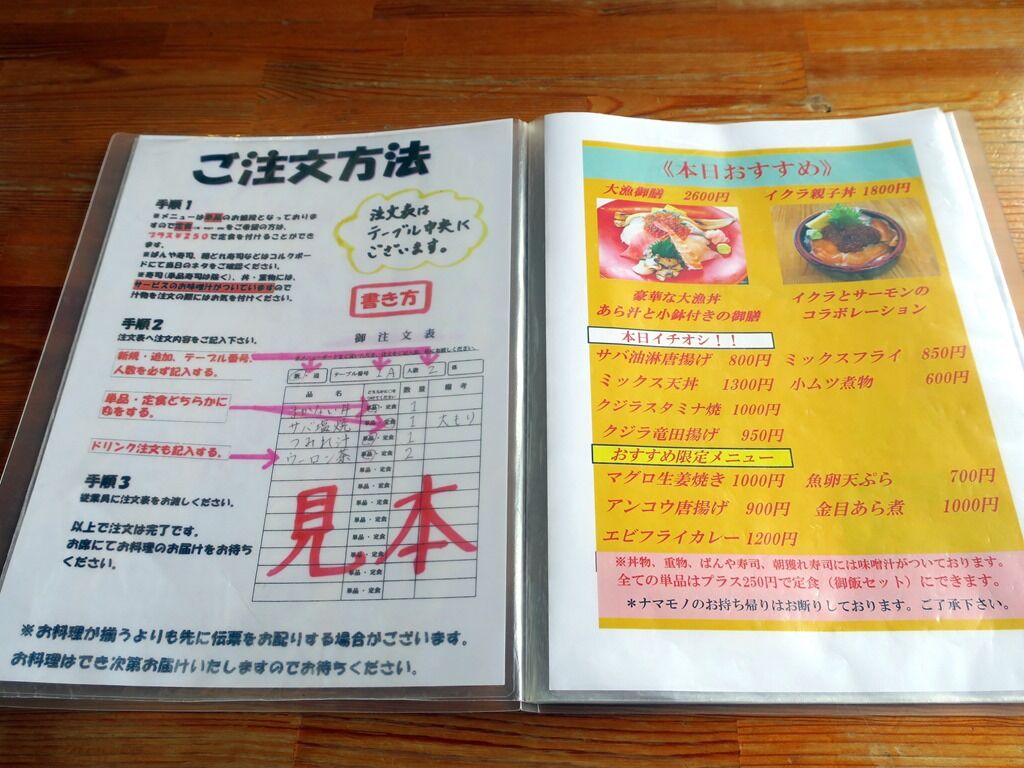 ご注文方法
手順1
※メニューは単品のお値段となっておりま
すので定食をご希望の方は、
プラス¥250で定食を付けることができ
ます。
※ばんや寿司、朝どれ寿司などはコルクボー
ドにて当日のネタをご確認ください。
※寿司(単品寿司は除く)、丼・重物には、
サービスのお味噌汁がついていますので
汁物を注文の際にはお気を付けください。
注文表は
テーブル中央に
ございます。
書き方
手順2
注文表へ注文内容をご記入下さい。
新規・追加、テーブル番号、
人数を必ず記入する。
単品・定食どちらかに
をする。
ドリンク注文も記入する。
御注文表
新・追 テーブル番号 A 人数 2 様
品名 数量 備考
単品・定食 1
サバ塩焼 単品・定食 1 大もり
つみれ汁 1
ウーロン茶 2
単品・定食
単品・定食
単品・定食
単品・定食
単品・定食
単品・定食
単品・定食
見本
手順3
従業員に注文表をお渡しください。
以上で注文は完了です。
お席にてお料理のお届けをお待ち
ください。
※お料理が揃うよりも先に伝票をお配りする場合がございます。
お料理はでき次第お届けいたしますのでお待ちください。
《本日おすすめ》
大漁御膳 2600円 イクラ親子丼 1800円
豪華な大漁丼
あら汁と小鉢付きの御膳
イクラとサーモンの
コラボレーション
本日イチオシ!!
サバ油淋唐揚げ 800円 ミックスフライ 850円
ミックス天丼 1300円 小ムツ煮物 600円
クジラスタミナ焼 1000円
クジラ竜田揚げ 950円
おすすめ限定メニュー
マグロ生姜焼き 1000円 魚卵天ぷら 700円
アンコウ唐揚げ 900円 金目あら煮 1000円
エビフライカレー 1200円
※丼物、重物、ばんや寿司、朝獲れ寿司には味噌汁がついております。
全ての単品はプラス250円で定食(御飯セット)にできます。
*ナマモノのお持ち帰りはお断りしております。ご了承下さい。